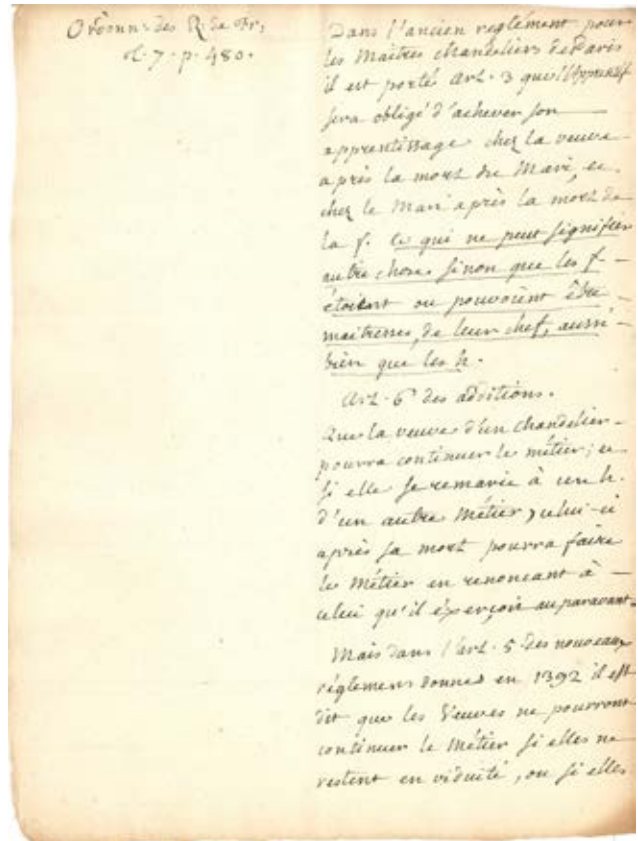 Ordonn. des R. de Fr.
t. 7. p. 480.
Dans l'ancien reglement pour
les Maitres chandeliers de Paris
il est porté Art. 3 que l'Apprentif
sera obligé d'achever son
apprentissage chez la veuve
après la mort du Mari, et
chez le Mari après la mort de
la f. Ce qui ne peut signifier
autre chose sinon que les f.
étoient ou pouvoient être
maitresses, de leur chef, aussi-
bien que les h.
Art. 6 des additions.
Que la veuve d'un chandelier
pourra continuer le métier; et
si elle se remarie à un h.
d'un autre Métier, celui-ci
après sa mort pourra faire
le Métier en renoncant à
celui qu'il éxerçoit auparavant.
Mais dans l'art. 5 des nouveaux
réglemens donnés en 1392 il est
dit que les Veuves ne pourront
continuer le Métier si elles ne
restent en viduité, ou si elles